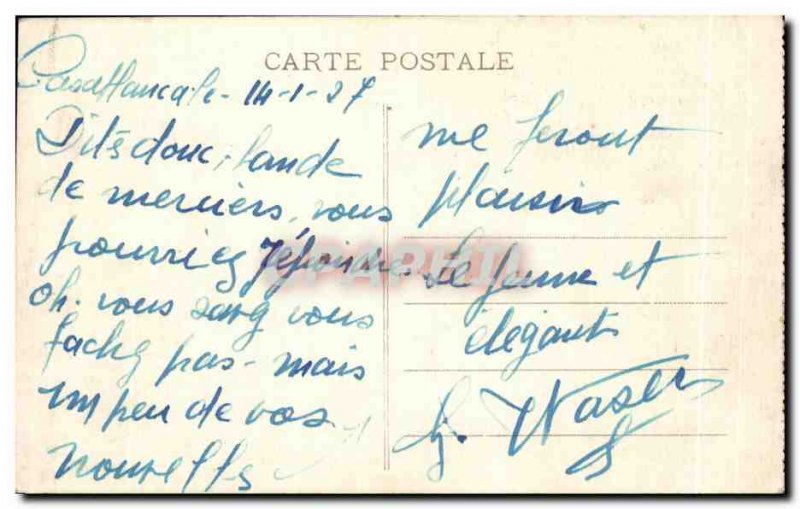 CARTE POSTALE
Casablanca le - 14-1-27
Dites donc, bande
de merciers, vous
pourriez répondre.
oh. vous savez vous
fachez pas - mais
un peu de vos
nouvelles
me feront
plaisir
Le jeune et
élégant